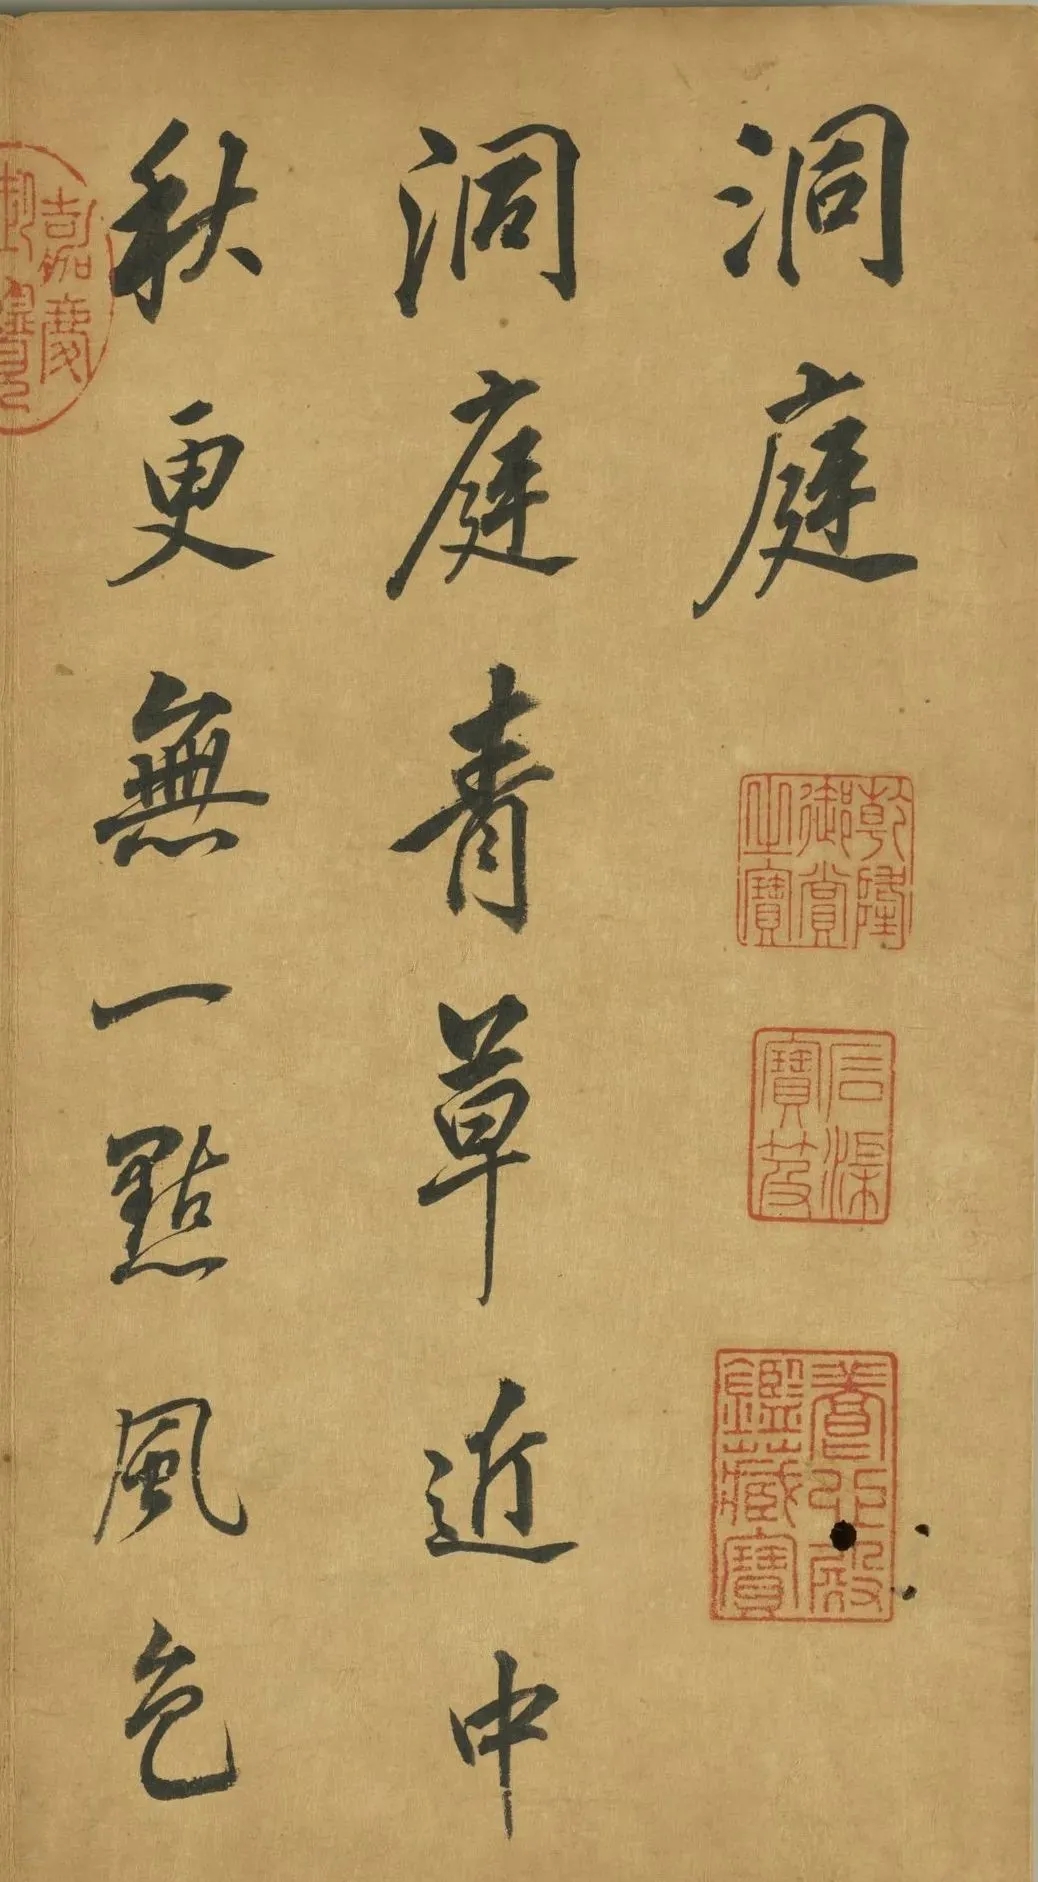 洞庭
乾隆
御賞
之寶
石渠
寶笈
養心殿
鑑藏寶
洞庭青草近中
秋更無一點風色
嘉慶
御覽